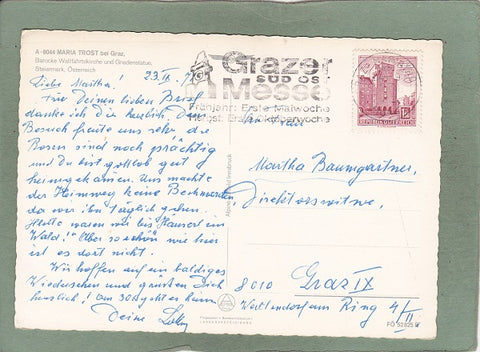 A-8044 MARIA TROST bei Graz,
Barocke Wallfahrtskirche und Gnadenstatue.
Steiermark, Österreich
Grazer
SÜD OST
Messe
Frühjahr: Erste Maiwoche
Herbst: Erste Oktoberwoche
REPUBLIK ÖSTERREICH
23. IX.
Liebe Martha!
Für Deinen lieben Brief
danke ich Dir herzlich. Dein
Besuch freute uns sehr, die
Rosen sind noch prächtig
und Du bist gottlob gut
heimgekommen. Uns machte
der Heimweg keine Beschwerden
da wir ihn täglich gehen.
Heute waren wir bis
Wald!" Aber so schön wie hier
ist es dort nicht.
Wir hoffen auf ein baldiges
Wiedersehen und grüßen Dich
herzlich! Am 30. geht es heim
Deine
Frau
Martha Baumgartner,
Direktorswitwe,
8010 Graz IX
Waltendorfer Ring 4/II